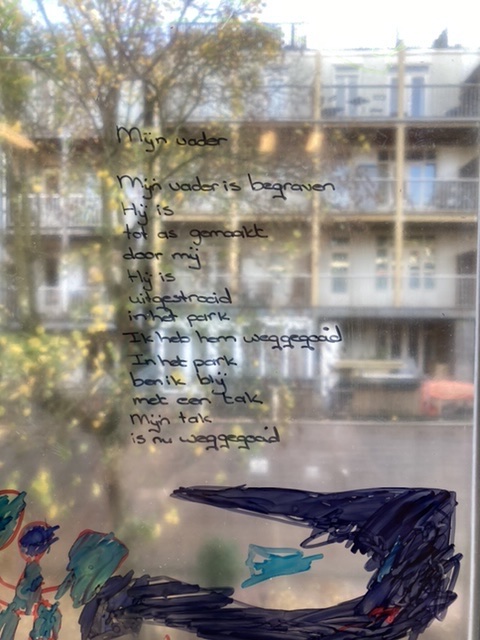 Mijn vader
Mijn vader is begraven
Hij is
tot as gemaakt
door mij
Hij is
uitgestrooid
in het park
Ik heb hem weggegooid
In het park
ben ik blij
met een tak
Mijn tak
is nu weggegooid